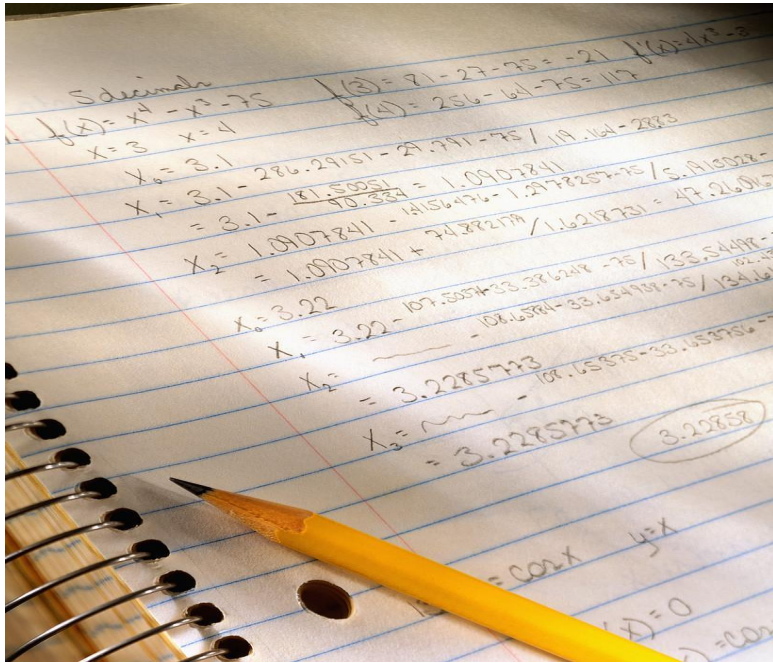 5 decimals
1. f(x) = x⁴ - x³ - 75 f(3) = 81 - 27 - 75 = -21 f'(x) = 4x³ - 3
x = 3 x = 4 f(4) = 256 - 64 - 75 = 117
x₀ = 3.1
x₁ = 3.1 - 286.29151 - 29.791 - 75 / 119.164 - 28.83
= 3.1 - 181.50051 / 90.334 = 1.0907841
x₂ = 1.0907841 - 1.4156476 - 1.2978257 - 75 / 5.1913028 -
= 1.0907841 + 74.882179 / 1.6218731 = 47.260967
x₀ = 3.22
x₁ = 3.22 - 107.50374 - 33.386248 - 75 / 133.54498 -
x₂ = - 108.65884 - 33.654938 - 75 /
= 3.2285773
x₃ = - 108.65375 - 33.653756 -
= 3.2285773 3.22858
= cos x y = x
(x) = 0
) = cos